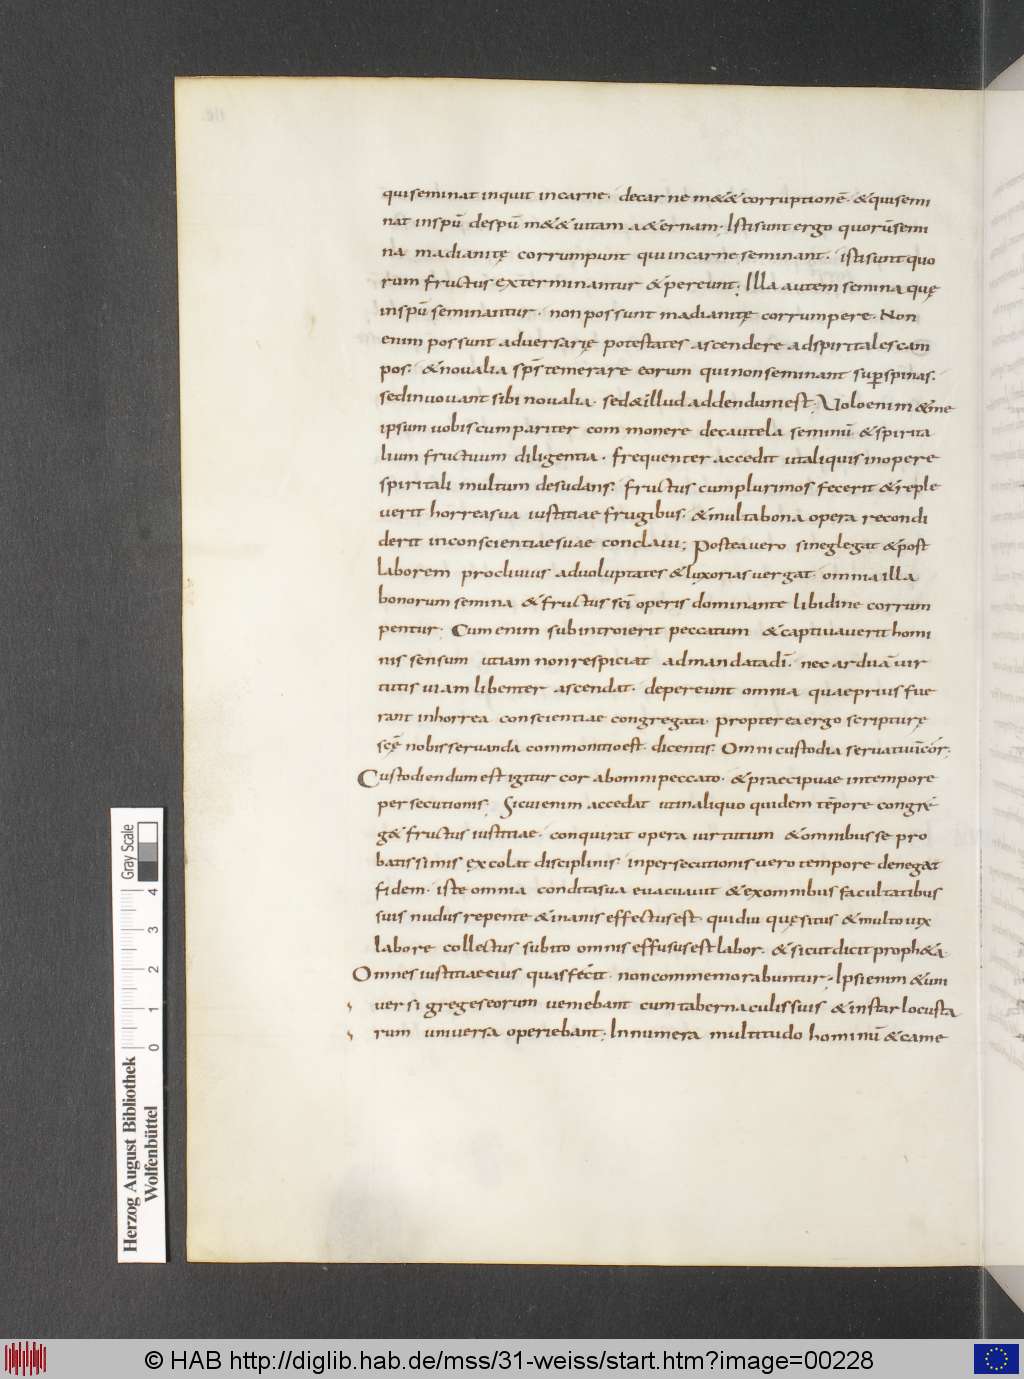 qui seminat inquit in carne. de carne m&& corruptionē. & qui semi
nat in spū despū m&& uitam a&ernam. Isti sunt ergo quorū semi
na madianitę corrumpunt qui in carne seminant. isti sunt quo
rum fructus exterminantur & pereunt. Illa autem semina quę
in spū seminantur. non possunt madianitę corrumpere. Non
enim possunt aduersarię potestates ascendere ad spiritales cam
pos. & noualia sps temerare eorum qui non seminant sup spinas.
sed inouant sibi noualia. sed & illud addendum est. Uolo enim & me
ipsum uobiscum pariter com monere de cautela seminū & spirita
lium fructuum diligentia. frequenter accedit ut aliquis in opere
spiritali multum desudans. fructus cumplurimos fecerit & reple
uerit horrea sua iustitiae frugibus. & multa bona opera recondi
derit in conscientiae suae conclaui; Postea uero si neglegat & post
laborem procliuius ad uoluptates & luxorias uergat. omnia illa
bonorum semina & fructus sci operis dominante libidine corrum
pentur. Cum enim subintroierit peccatum & captiuauerit homi
nis sensum ut iam non respiciat ad mandata di. nec arduā uir
tutis uiam libenter ascendat. depereunt omnia quae prius fue
rant in horrea conscientiae congregata. propterea ergo scripturę
scę nobis seruanda commonitio est. dicentis. Omni custodia serua tuū cor.
Custodiendum est igitur cor ab omni peccato. & praecipuae in tempore
persecutionis. Sicui enim accedat ut in aliquo quidem tēpore congre
g& fructus iustitiae. conquirat opera uirtutum & omnibus se pro
batissimis excolat disciplinis. in persecutionis uero tempore deneg&
fidem. iste omnia condita sua euacuauit & ex omnibus facultatibus
suis nudus repente & inanis effectus est. qui diu quęsitus & multo uix
labore collectus subito omnis effusus est labor. & sicut dicit proph&a.
Omnes iustitiae eius quas fecit. non commemorabuntur. Ipsi enim & uni
uersi greges eorum ueniebant cum tabernaculis suis & instar locusta
rum uniuersa operiebant. Innumera multitudo hominū & came
Herzog August Bibliothek
Wolfenbüttel
0 1 2 3 4
Gray Scale
© HAB http://diglib.hab.de/mss/31-weiss/start.htm?image=00228